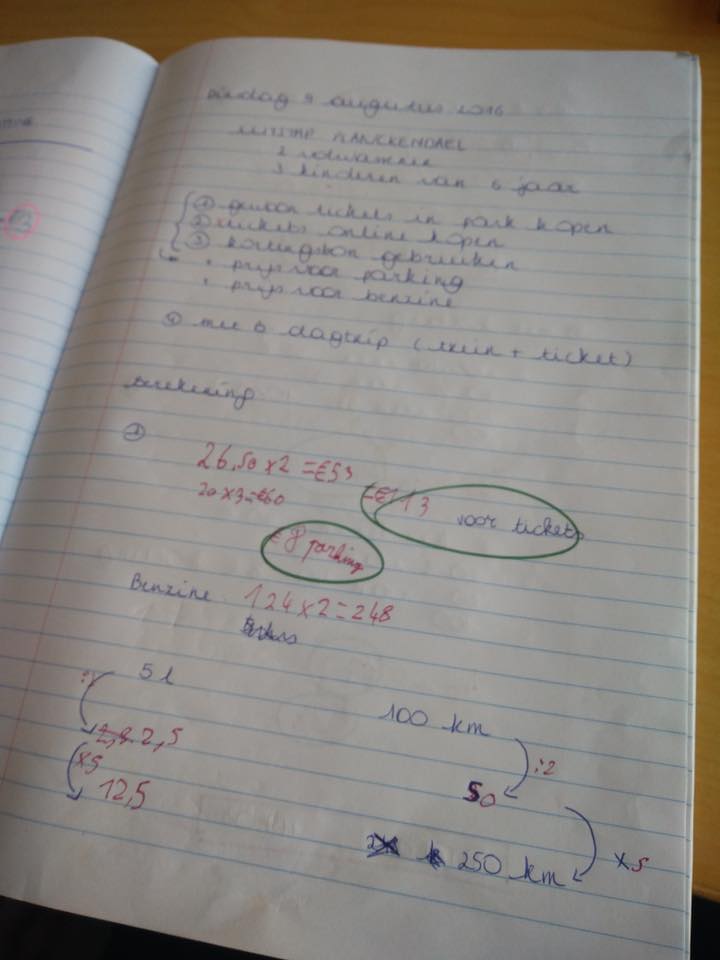 dinsdag 9 augustus 2016
PLANCKENDAEL
2 volwassene
3 kinderen van 6 jaar
① gewoon tickets in park kopen
② tickets online kopen
③ kortingsbon gebruiken
• prijs voor parking
• prijs voor benzine
④ met b dagtrip (trein + ticket)
berekening
①
26,50 x 2 = €53
20 x 3 = €60 = €113 voor tickets
€8 parking
Benzine 124 x 2 = 248
5 l
100 km
:2
2,5
:2
50
x5
12,5
x5
250 km